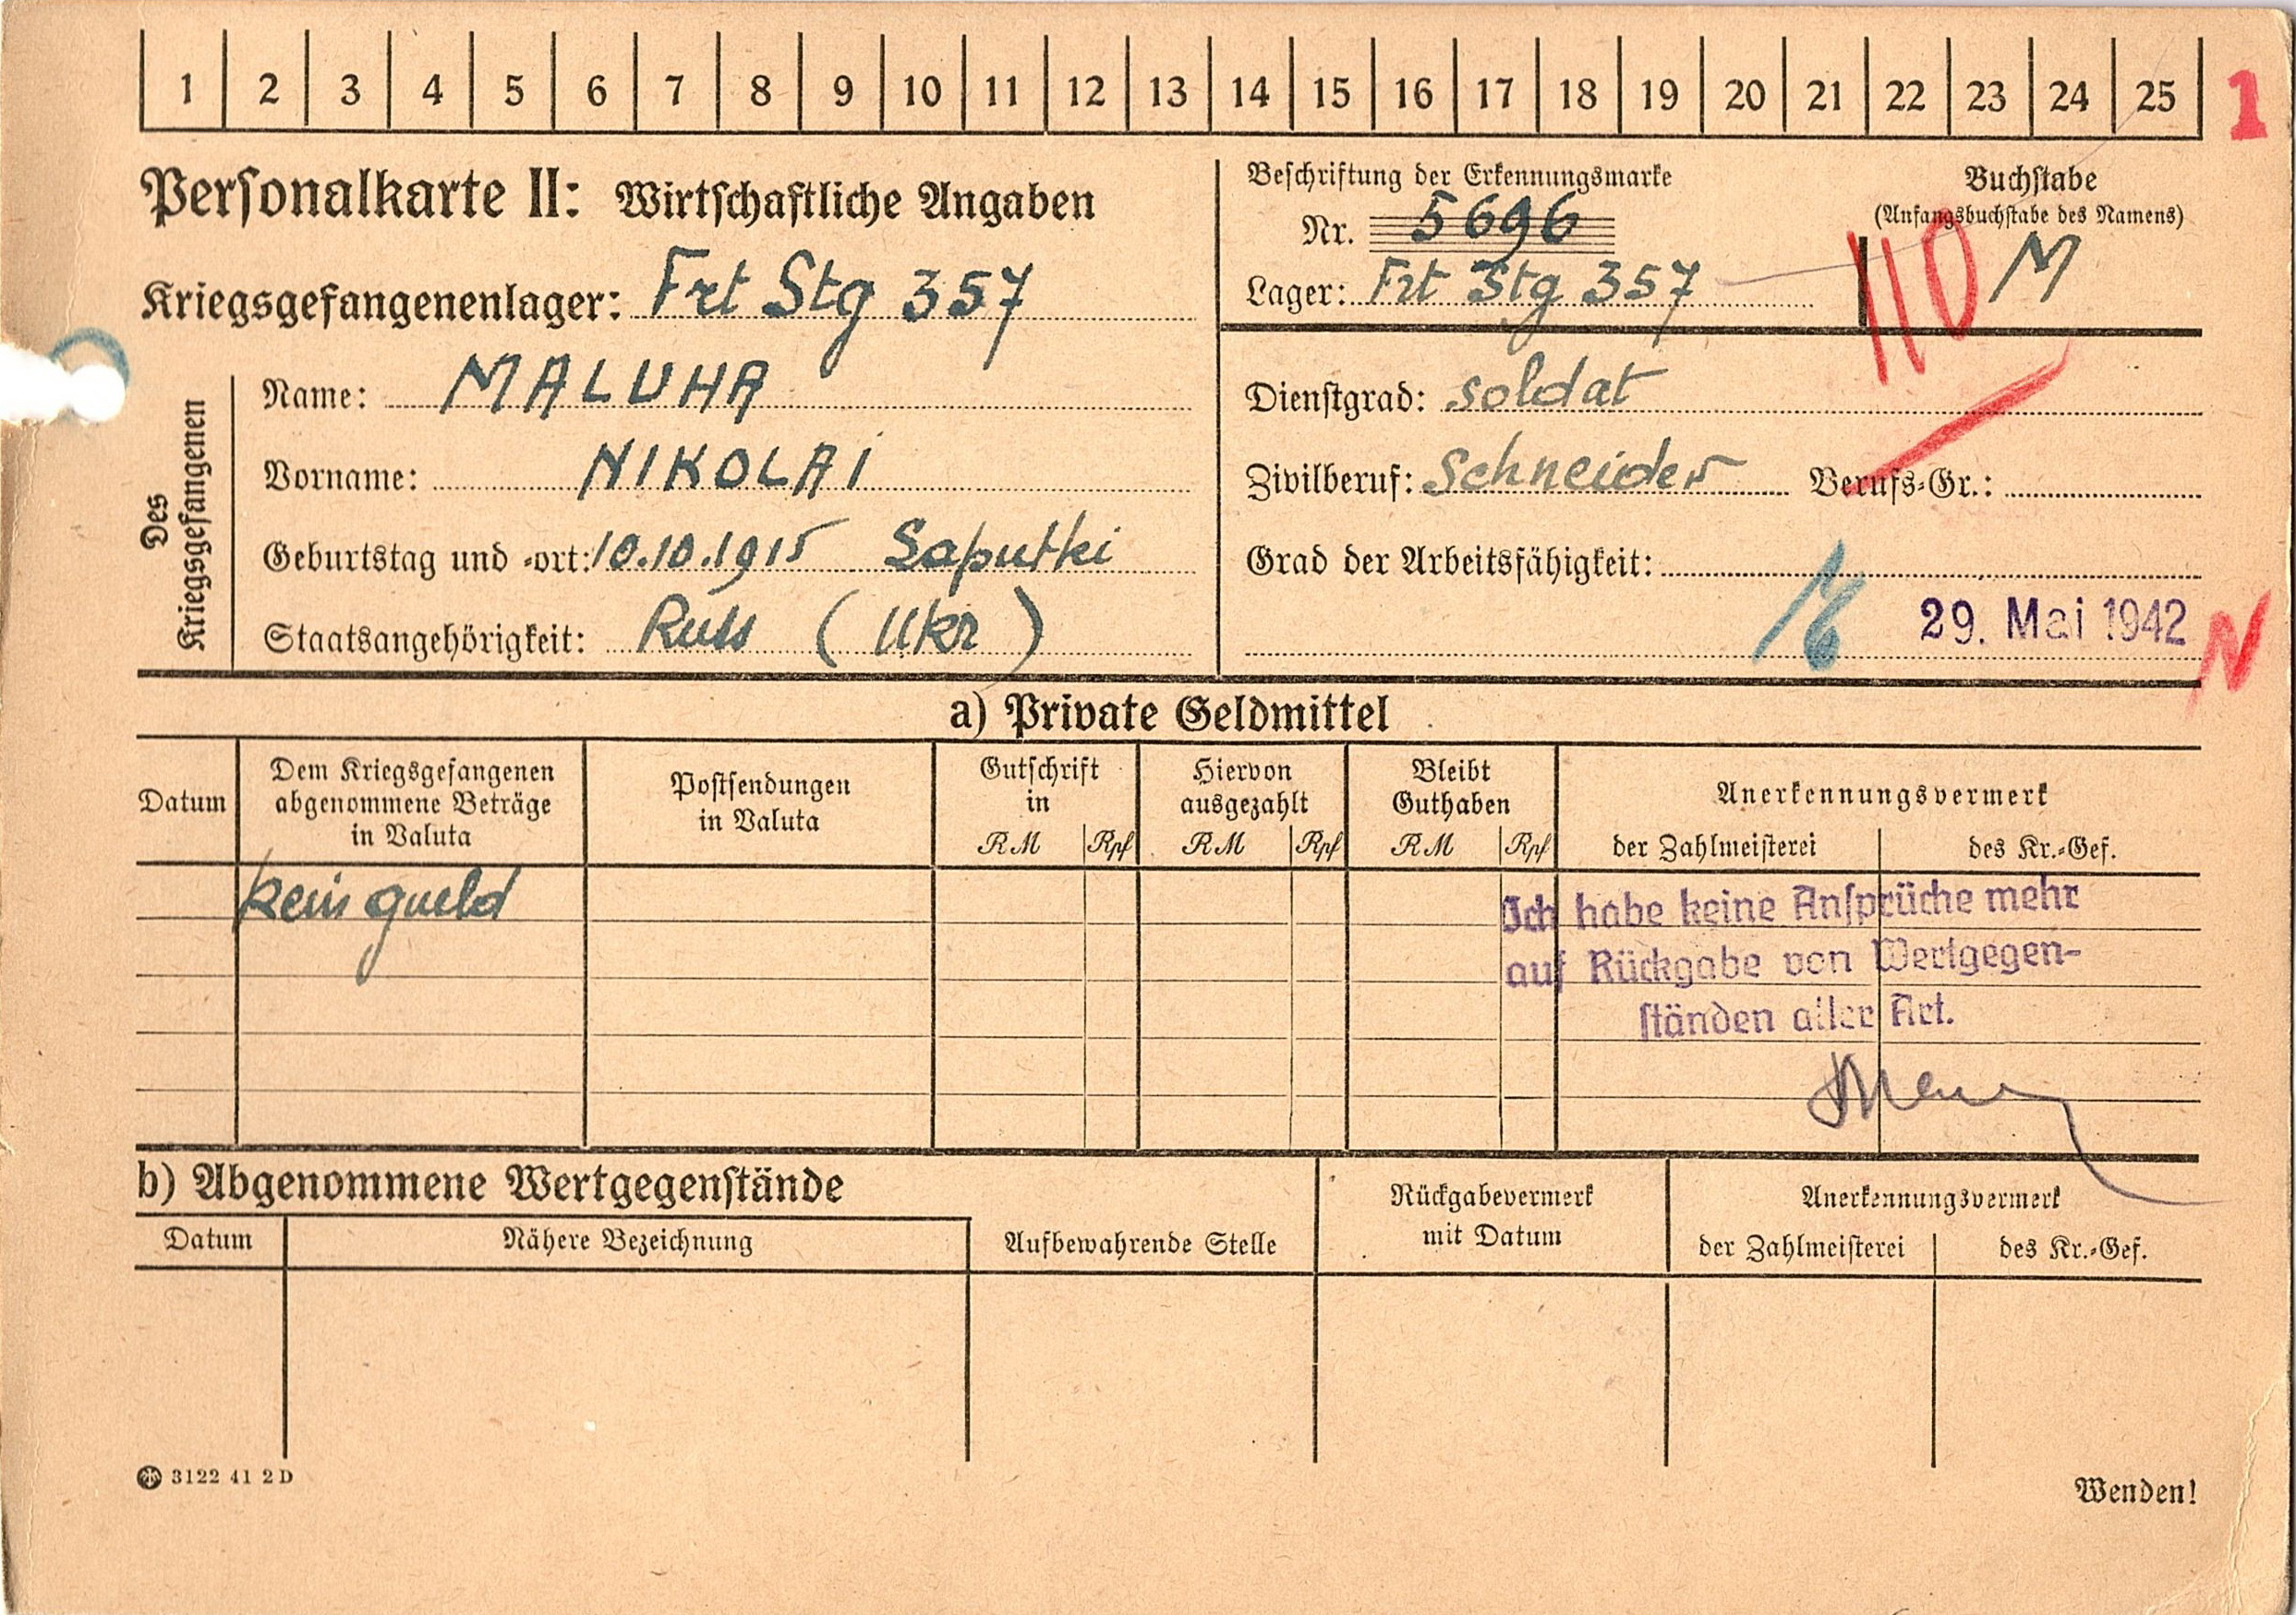 1 2 3 4 5 6 7 8 9 10 11 12 13 14 15 16 17 18 19 20 21 22 23 24 25 1
Personalkarte II: Wirtschaftliche Angaben
Kriegsgefangenenlager: Frt Stg 357
Beschriftung der Erkennungsmarke
Nr. 5696
Lager: Frt Stg 357
Buchstabe
(Anfangsbuchstabe des Namens)
M
110
Des
Kriegsgefangenen
Name: MALUHA
Vorname: NIKOLAI
Geburtstag und -ort: 10.10.1915 Saputki
Staatsangehörigkeit: Russ (Ukr)
Dienstgrad: soldat
Zivilberuf: Schneider Berufs-Gr.:
Grad der Arbeitsfähigkeit:
29. Mai 1942
N
a) Private Geldmittel
Datum
Dem Kriegsgefangenen
abgenommene Beträge
in Valuta
Postsendungen
in Valuta
Gutschrift
in
RM Rpf
Hiervon
ausgezahlt
RM Rpf
Bleibt
Guthaben
RM Rpf
Anerkennungsvermerk
der Zahlmeisterei des Kr.-Gef.
kein gueld
Ich habe keine Ansprüche mehr
auf Rückgabe von Wertgegen-
ständen aller Art.
b) Abgenommene Wertgegenstände
Datum Nähere Bezeichnung
Aufbewahrende Stelle
Rückgabevermerk
mit Datum
Anerkennungsvermerk
der Zahlmeisterei des Kr.-Gef.
3122 41 2D
Wenden!